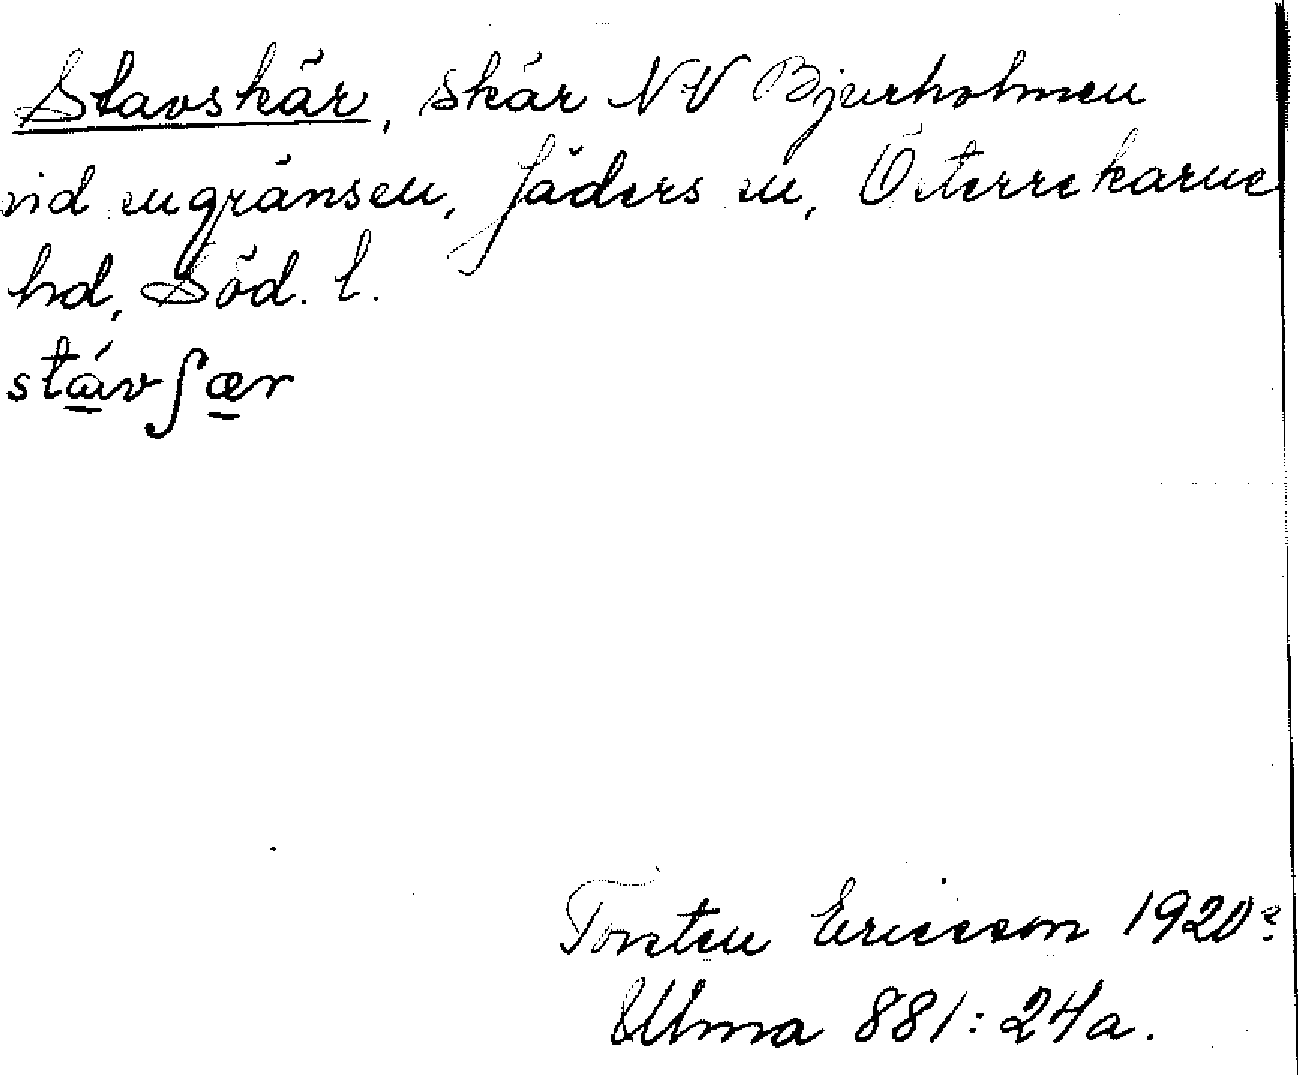 Stavskär, skär NV Bjurholmen
vid sngränsen, Jäders sn, Österrekarne
hd, Söd. l.
stávʃær
Torsten Ericsson 1920?
Ulma 881:24a.